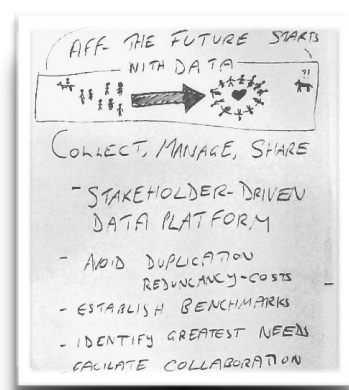 AFF- THE FUTURE STARTS
WITH DATA
?!
COLLECT, MANAGE, SHARE
- STAKEHOLDER-DRIVEN
DATA PLATFORM
- AVOID DUPLICATION
REDUNCANCY-COSTS
- ESTABLISH BENCHMARKS
- IDENTIFY GREATEST NEEDS
FACILATE COLLABORATION